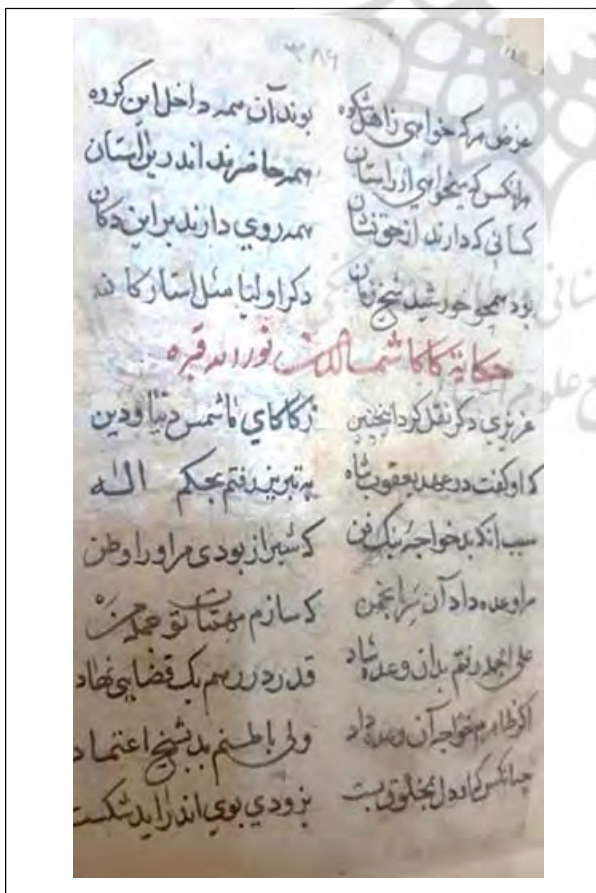 ۳۸۶
غرض هرکه خواهی ز اهل شکوه بوند آن همه داخل این کروه
هرانکس که میخواهی از راستان همه حاضرند اندرین آستان
کسانی که دارند از حق نشان همه روی دارند بر این دکان
بود همچو خورشید شیخ زمان دکر اولیا مثل استارکان
حکایة کاکا شمس الدین نور الله قبره
عزیزی دکر نقل کرد اینچنین ز کاکای ما شمس دنیا و دین
که او کفت در عهد یعقوب شاه به تبریز رفتم بحکم اله
سبب آنکه بد خواجهٔ نیک فن که شیراز بودی مر او را وطن
مرا وعده داد آن سر انجمن که سازم مهمات تو
علی الجمله رفتم بدان وعده شاد قدر در رهم یک قضایی نهاد
اکر ظاهرم خواجه آن وعده داد ولی باطنم بد بشیخ اعتماد
هرانکس که او دل بمخلوق بست بزودی بوی اندر آید شکست